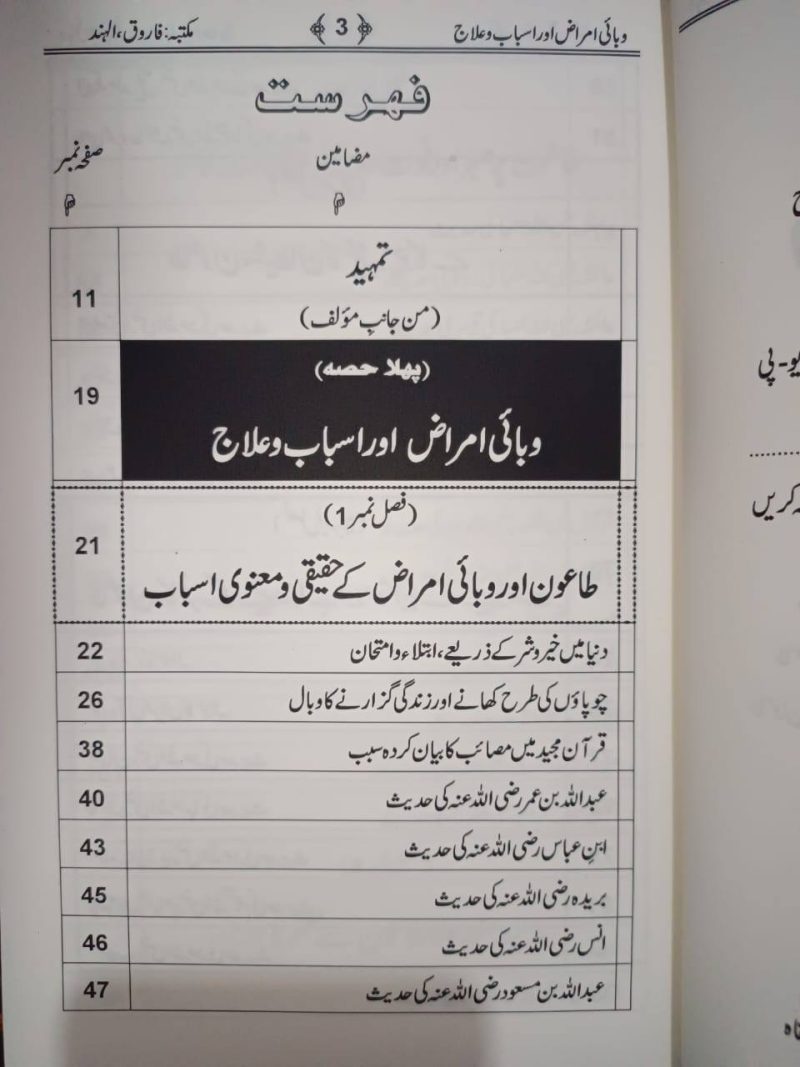 وبائی امراض اور اسباب وعلاج ﴿3﴾ مکتبہ: فاروق، الہند
فہرست
مضامین صفحہ نمبر
تمہید
(من جانب مؤلف) 11
(پہلا حصہ)
وبائی امراض اور اسباب وعلاج 19
(فصل نمبر 1)
طاعون اور وبائی امراض کے حقیقی ومعنوی اسباب 21
دنیا میں خیر وشر کے ذریعے، ابتلاء وامتحان 22
چوپاؤں کی طرح کھانے اور زندگی گزارنے کا وبال 26
قرآن مجید میں مصائب کا بیان کردہ سبب 38
عبداللہ بن عمر رضی اللہ عنہ کی حدیث 40
ابنِ عباس رضی اللہ عنہ کی حدیث 43
بریدہ رضی اللہ عنہ کی حدیث 45
انس رضی اللہ عنہ کی حدیث 46
عبداللہ بن مسعود رضی اللہ عنہ کی حدیث 47
یو-پی
کریں